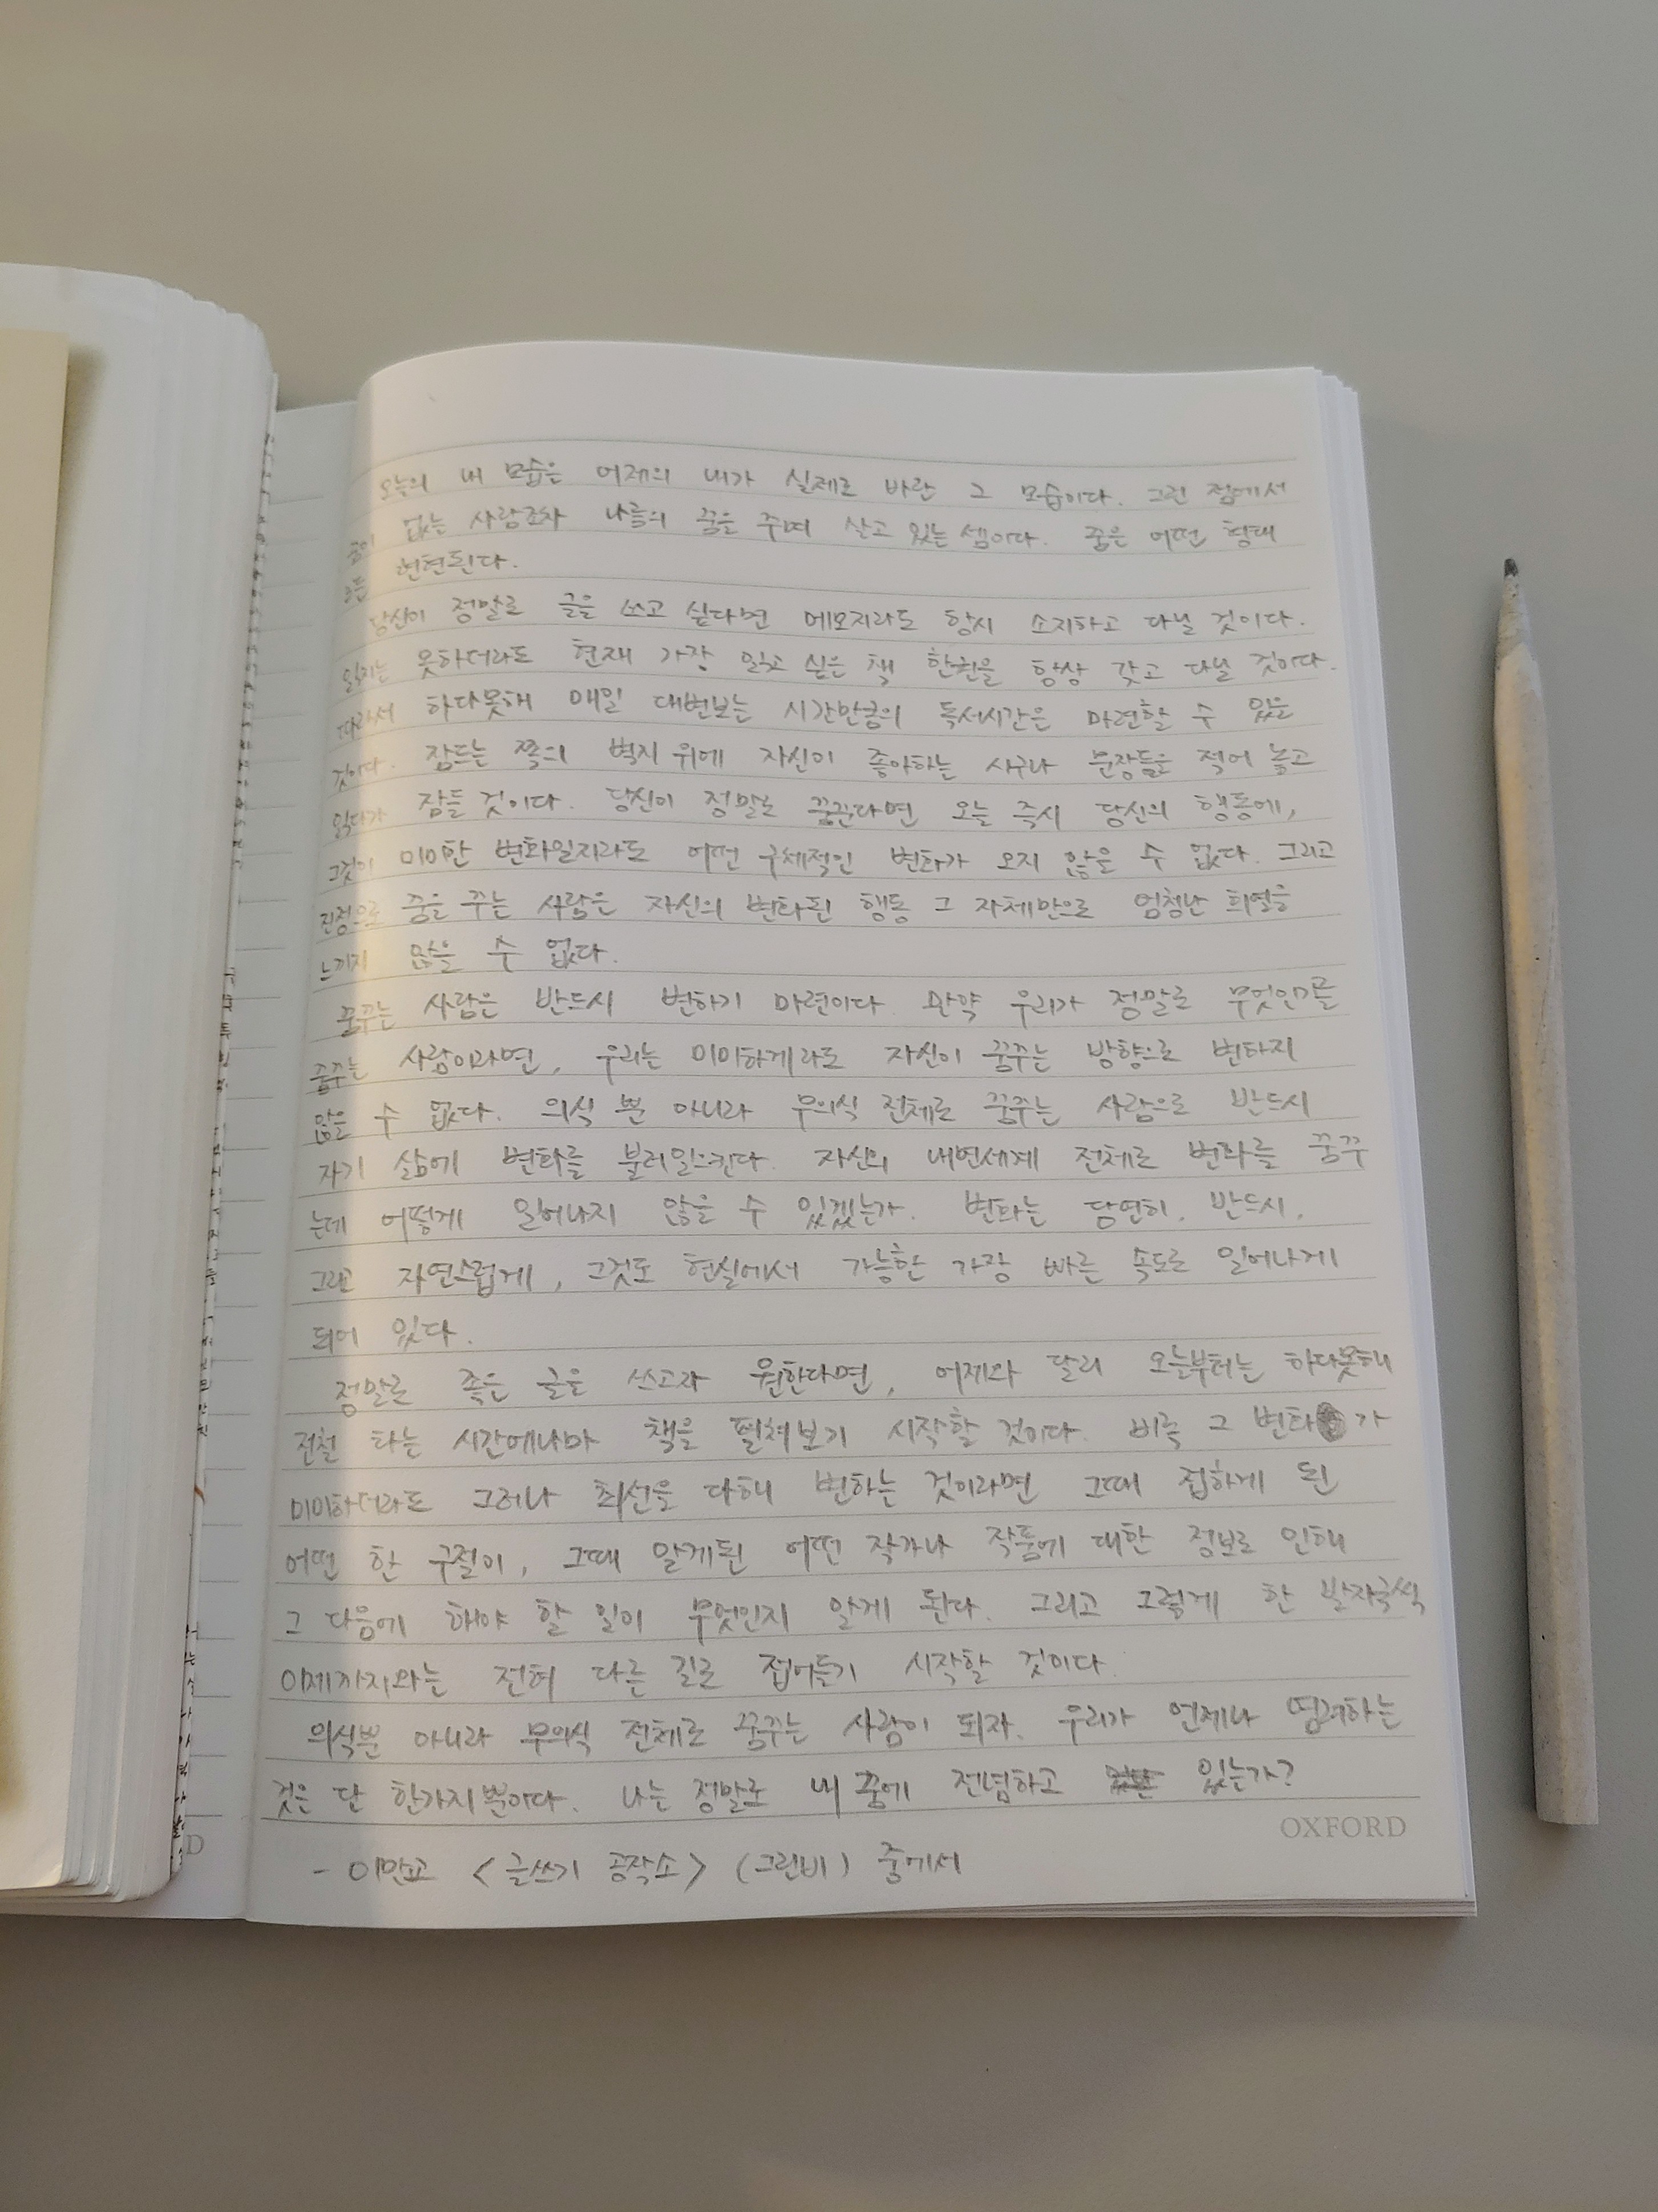 오늘의 내 모습은 어제의 내가 실제로 바란 그 모습이다. 그런 점에서
꿈이 없는 사람조차 나름의 꿈을 꾸며 살고 있는 셈이다. 꿈은 어떤 형태
로든 현현된다.
당신이 정말로 글을 쓰고 싶다면 메모지라도 항시 소지하고 다닐 것이다.
읽지는 못하더라도 현재 가장 읽고 싶은 책 한권을 항상 갖고 다닐 것이다.
따라서 하다못해 매일 대변보는 시간만큼의 독서시간은 마련할 수 있을
것이다. 잠드는 쪽의 벽지 위에 자신이 좋아하는 시구나 문장들을 적어 놓고
읽다가 잠들 것이다. 당신이 정말로 꿈꾼다면 오늘 즉시 당신의 행동에,
그것이 미미한 변화일지라도 어떤 구체적인 변화가 오지 않을 수 없다. 그리고
진정으로 꿈을 꾸는 사람은 자신의 변화된 행동 그 자체만으로 엄청난 희열을
느끼지 않을 수 없다.
꿈꾸는 사람은 반드시 변하기 마련이다. 만약 우리가 정말로 무엇인가를
꿈꾸는 사람이라면, 우리는 미미하게라도 자신이 꿈꾸는 방향으로 변하지
않을 수 없다. 의식 뿐 아니라 무의식 전체로 꿈꾸는 사람으로 반드시
자기 삶에 변화를 불러일으킨다. 자신의 내면세계 전체로 변화를 꿈꾸
는데 어떻게 일어나지 않을 수 있겠는가. 변화는 당연히, 반드시,
그리고 자연스럽게, 그것도 현실에서 가능한 가장 빠른 속도로 일어나게
되어 있다.
정말로 좋은 글을 쓰고자 원한다면, 어제와 달리 오늘부터는 하다못해
전철 타는 시간에나마 책을 펼쳐보기 시작할 것이다. 비록 그 변화가
미미하더라도 그러나 최선을 다해 변하는 것이라면 그때 접하게 된
어떤 한 구절이, 그때 알게된 어떤 작가나 작품에 대한 정보로 인해
그 다음에 해야 할 일이 무엇인지 알게 된다. 그리고 그렇게 한 발자국씩
이제까지와는 전혀 다른 길로 접어들기 시작할 것이다.
의식뿐 아니라 무의식 전체로 꿈꾸는 사람이 되자. 우리가 언제나 염려하는
것은 단 한가지뿐이다. 나는 정말로 내 꿈에 전념하고 있는가?
OXFORD
- 이만교 <글쓰기 공작소> (그린비) 중에서